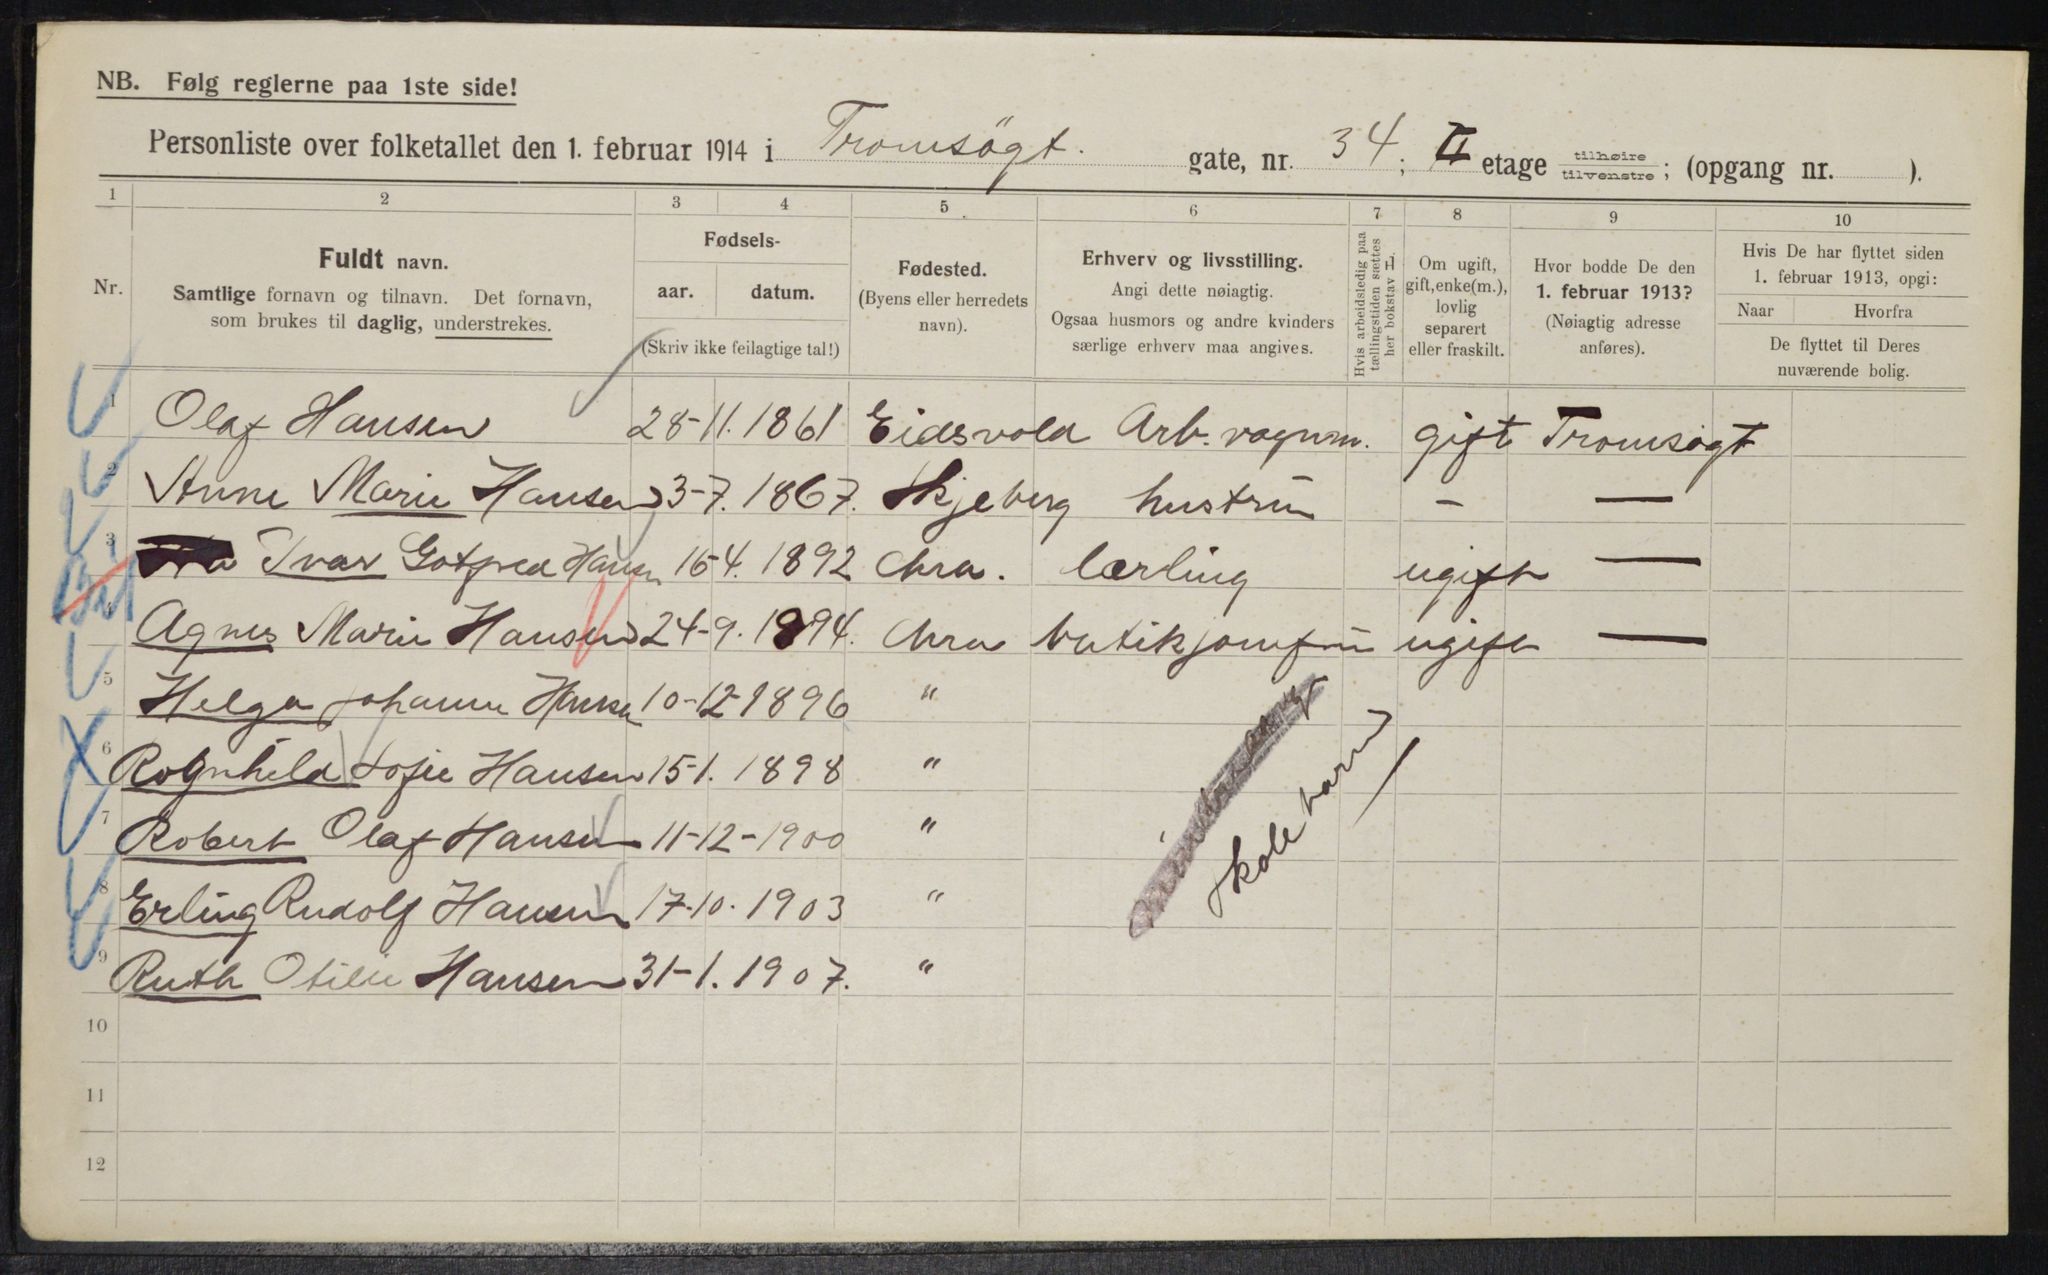 NB. Følg reglerne paa 1ste side!
Personliste over folketallet den 1. februar 1914 i Tromsögt. gate, nr. 34; II etage tilhøire tilvenstre; (opgang nr. ).
1 2 3 4 5 6 7 8 9 10
Nr.
Fuldt navn.
Samtlige fornavn og tilnavn. Det fornavn,
som brukes til daglig, understrekes.
Fødsels-
aar. datum.
(Skriv ikke feilagtige tal!)
Fødested.
(Byens eller herredets
navn).
Erhverv og livsstilling.
Angi dette nøiagtig.
Ogsaa husmors og andre kvinders
særlige erhverv maa angives.
Hvis arbeidsledig paa
tællingstiden sættes
her bokstav L
Om ugift,
gift, enke(m.),
lovlig
separert
eller fraskilt.
Hvor bodde De den
1. februar 1913?
(Nøiagtig adresse
anføres).
Hvis De har flyttet siden
1. februar 1913, opgi:
Naar Hvorfra
De flyttet til Deres
nuværende bolig.
1 Olaf Hansen 28-11. 1861 Eidsvold Arb. vognm. gift Tromsøgt
2 Anne Marie Hansen 3-7. 1867. Skjeberg hustru - —
3 Ivar Gotfred Hansen 16-4. 1892 Chra. lærling ugift —
4 Agnes Marie Hansen 24-9. 1894. Chra butikjomfru ugift —
5 Helga Johanne Hansen 10-12-1896 "
6 Rognhild Sofie Hansen 15-1. 1898 "
7 Robert Olaf Hansen 11-12-1900 "
8 Erling Rudolf Hansen 17-10. 1903 "
9 Ruth Otilie Hansen 31-1. 1907. "
skolebarn
10
11
12